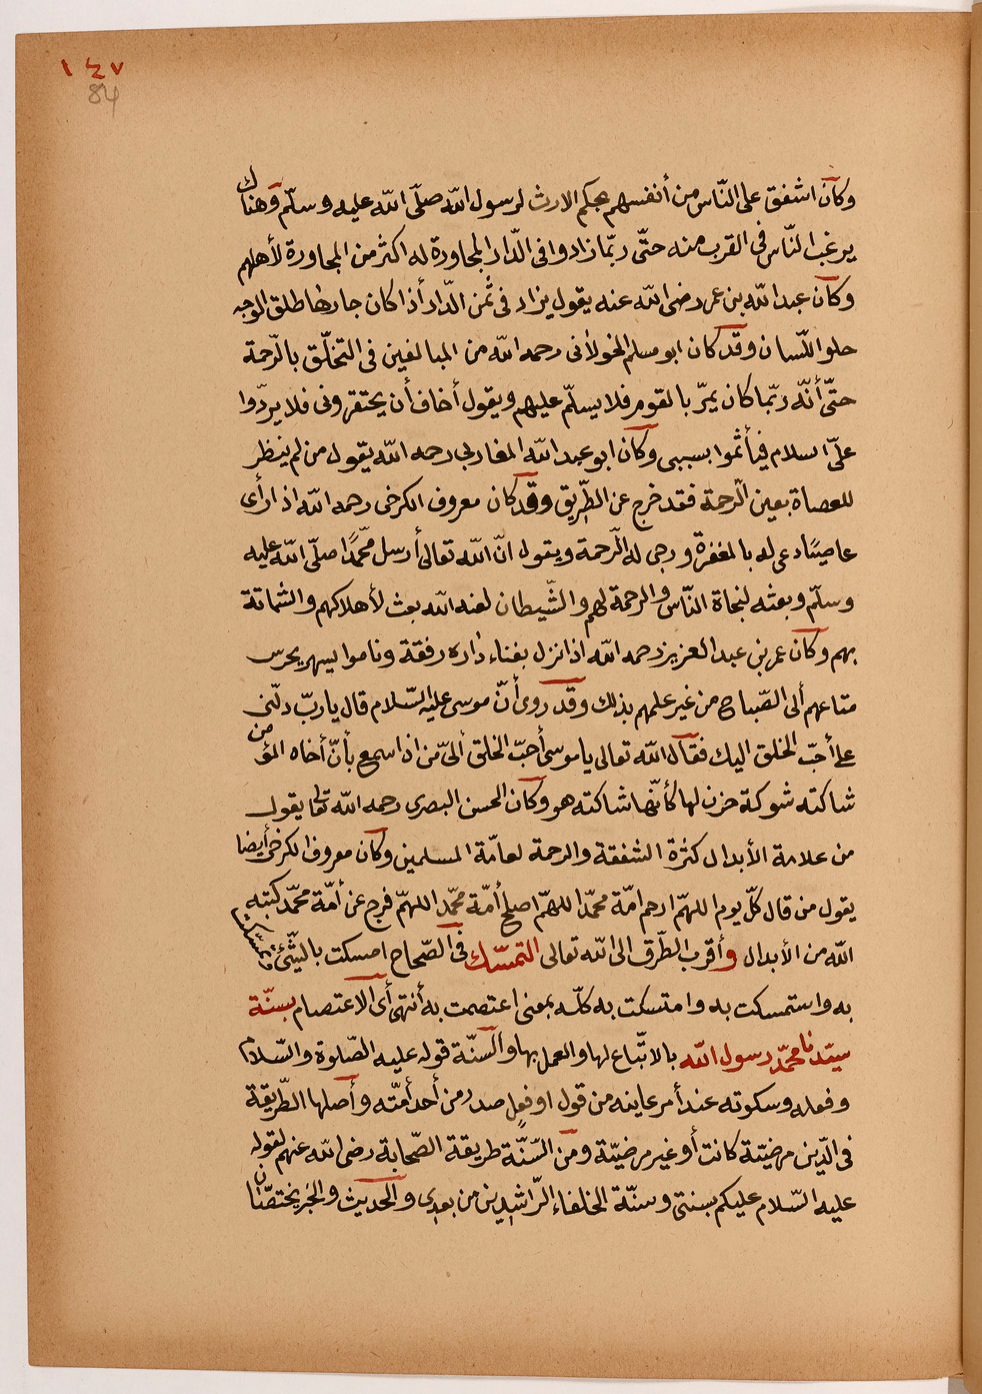 ١٤٧
84
وكان اشفق على النّاس من أنفسهم بحكم الارث لرسول اللّه صلّى اللّه عليه وسلّم وهناك
يرغب النّاس فى القرب منه حتّى ربّما زادوا فى الدّار المجاورة له اكثر من المجاورة لأهلهم
وكان عبد اللّه بن عمر رضى اللّه عنه يقول يزاد فى ثمن الدّار أذا كان جارها طلق الوجه
حلو اللّسان وقد كان ابو مسلم الخولانى رحمه اللّه من المبالغين فى التخلّق بالرّحمة
حتّى أنّه ربّما كان يمرّ بالقوم فلا يسلّم عليهم ويقول أخاف أن يحتقرونى فلا يردّوا
علىّ السلام فيأثموا بسببى وكان ابو عبد اللّه المغاربى رحمه اللّه يقول من لم ينظر
للعصاة بعين الرّحمة فقد خرج عن الطّريق وقد كان معروف الكرخى رحمه اللّه اذا رأى
عاصيًا دعى له بالمغفرة ورجى له الرّحمة ويقول انّ اللّه تعالى أرسل محمّدًا صلّى اللّه عليه
وسلّم وبعثه لنجاة النّاس والرحمة لهم والشّيطان لعنه اللّه بعث لأهلاكهم والشماتة
بهم وكان عمر بن عبد العزيز رحمه اللّه اذا نزل بفناء داره رفقة وناموا يسهر يحرس
متاعهم ألى الصّباح من غير علمهم بذلك وقد روى أنّ موسى عليه السّلام قال يا ربّ دلّنى
على أحبّ الخلق اليك فقال اللّه تعالى يا موسى أحبّ الخلق ألىّ من اذا سمع بأنّ أخاه المؤمن
شاكته شوكة حزن لها كأنّها شاكته هو وكان الحسن البصرى رحمه اللّه تعا يقول
من علامة الأبدال كثرة الشفقة والرحمة لعامّة المسلمين وكان معروف الكرخى أيضا
يقول من قال كلّ يوم اللهمّ ارحم امّة محمّد اللهمّ اصلح أمّة محمّد اللهمّ فرج عن أمّة محمّد كتبه
اللّه من الأبدال وأقرب الطّرق الى اللّه تعالى التمسّك فى الصّحاح امسكت بالشّئ وتمسّكت
به واستمسكت به وامتسكت به كلّه بمعنى اعتصمت به أنتهى أى الاعتصام بسنّة
سيّدنا محمّد رسول اللّه بالاتّباع لها والعمل بها والسنّة قوله عليه الصّلوة والسّلام
وفعله وسكوته عند أمر عاينه من قول او فعل صدر من أحد أمّته وأصلها الطّريقة
فى الدّين مرضيّة كانت أو غير مرضيّة ومن السّنّة طريقة الصّحابة رضى اللّه عنهم لقوله
عليه السّلام عليكم بسنتى وسنّة الخلفاء الرّاشدين من بعدى والحديث والخبر يختصّان